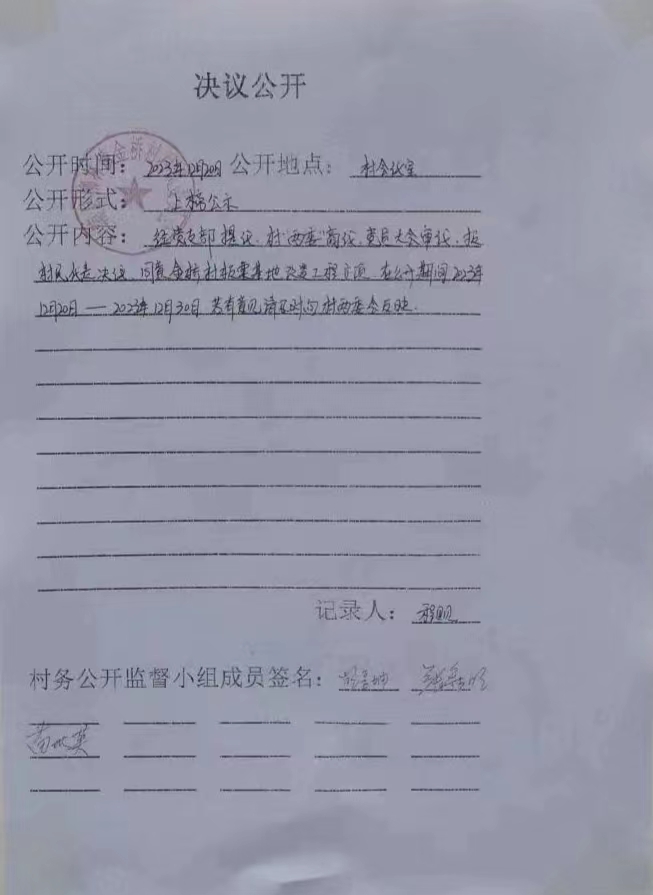 决议公开
公开时间：2023年12月20日 公开地点：村会议室
公开形式：上榜公示
公开内容：经党支部提议、村“两委”商议、党员大会审议、报
村民代表决议、同意金桥村板栗基地改造工程 在公开期间2023年
12月20日——2023年12月30日 若有意见请及时向村两委会反映.
记录人：
村务公开监督小组成员签名：
金桥村